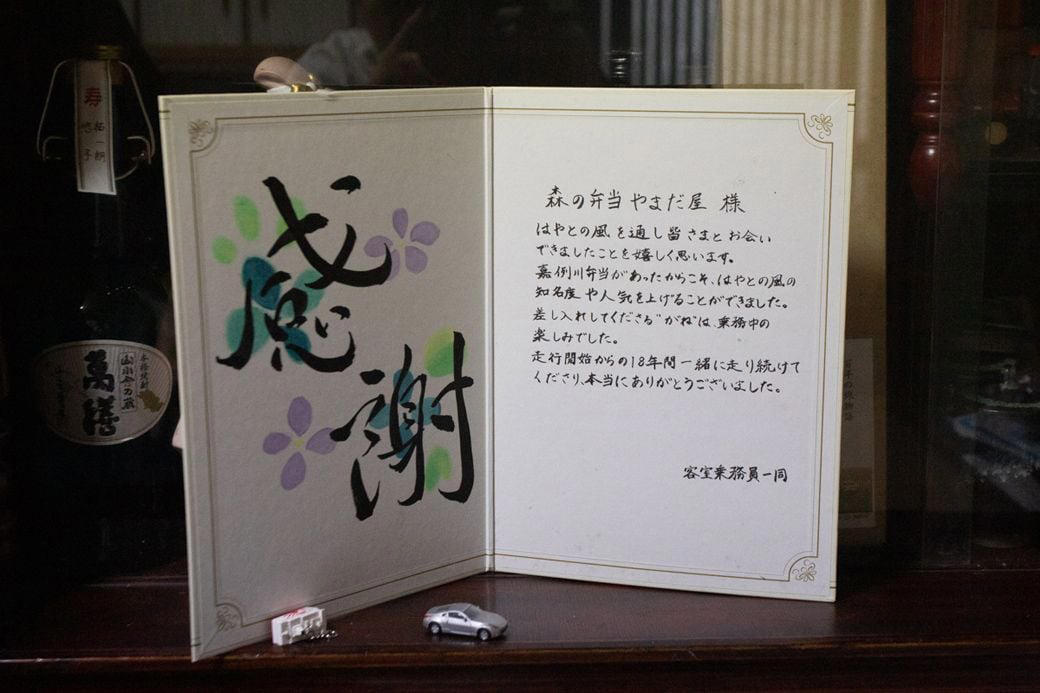 感謝
森の弁当 やまだ屋 様
はやとの風 を通し皆さまとお会い
できましたことを嬉しく思います。
嘉例川弁当があったからこそ、はやとの風の
知名度 や人気を上げることができました。
差し入れしてくださる"がね"は、乗務中の
楽しみでした。
走行開始からの18年間一緒に走り続けて
くださり、本当にありがとうございました。
客室乗務員一同
寿
本格焼酎
萬膳